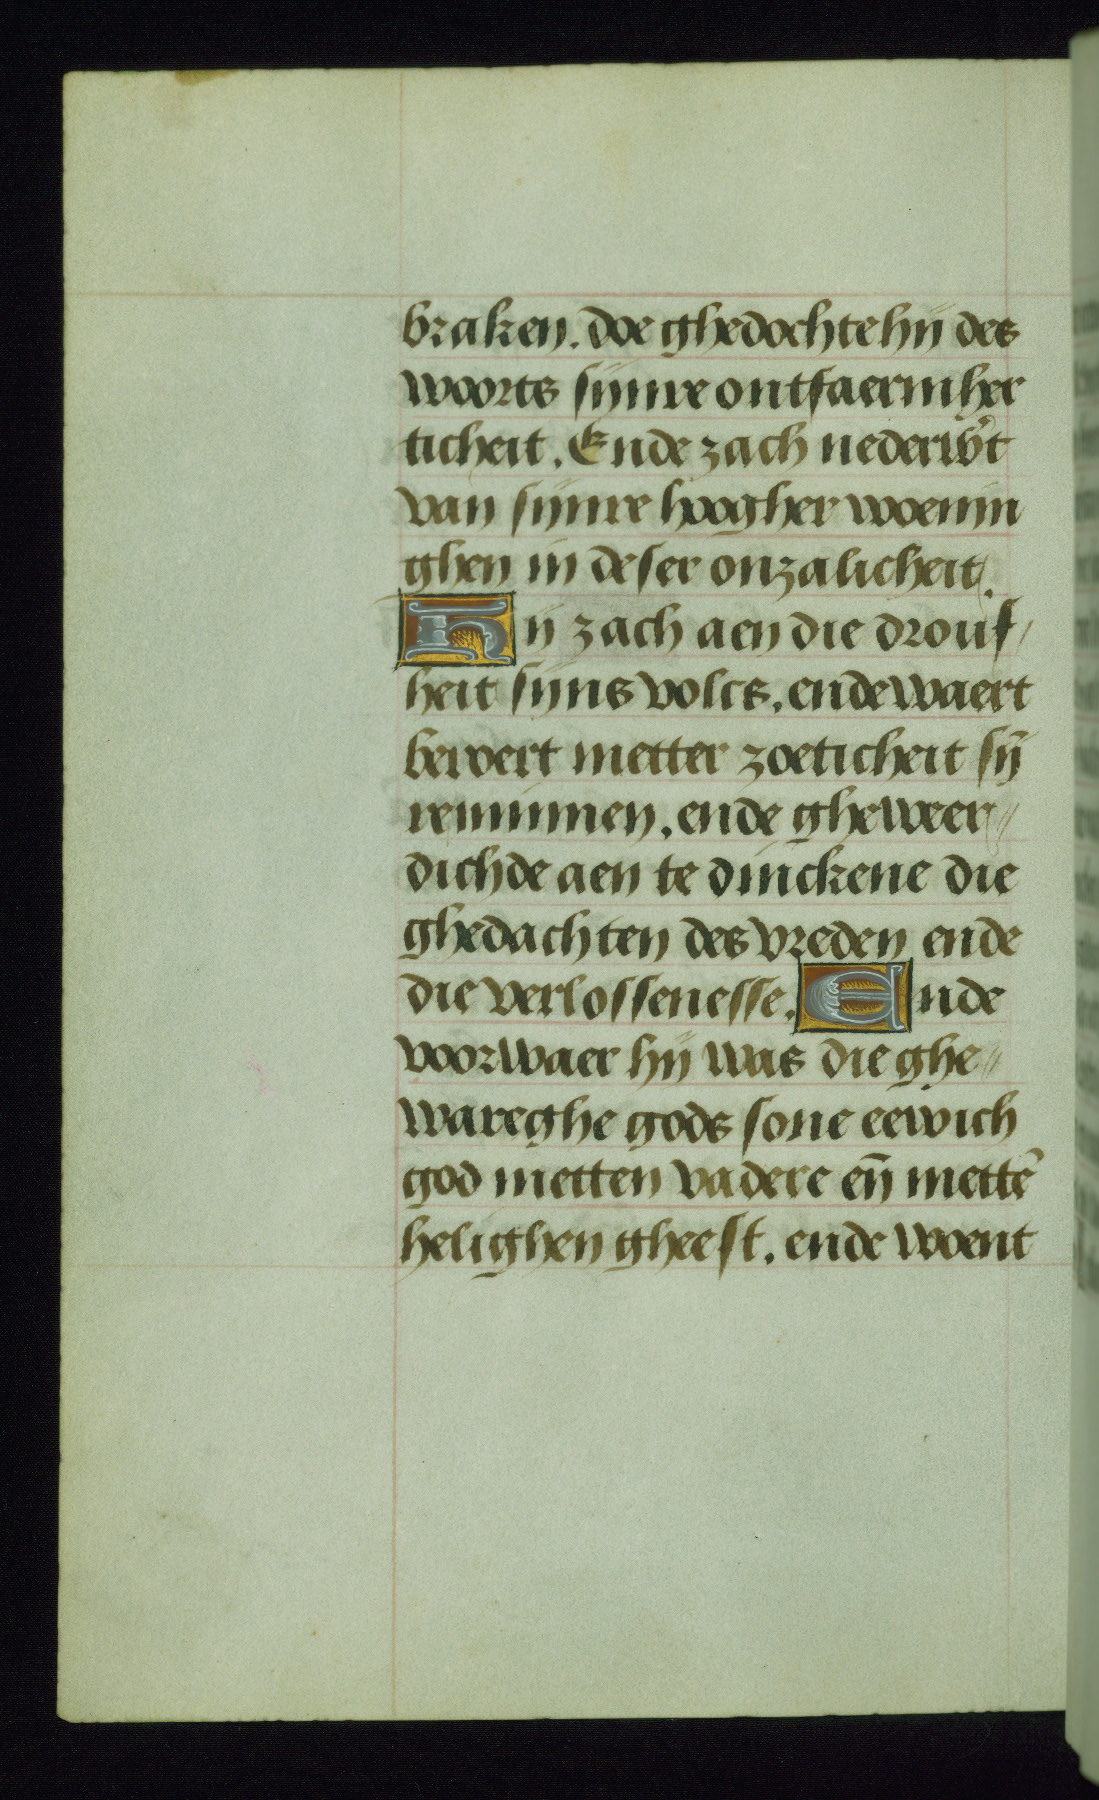 braken. doe ghedochte hij des
woorts sijnre ontfaermher
ticheit. Ende zach nederw't
van sijnre hoogher woenin
ghen in deser onzalicheit.
Hij zach aen die drouf-
heit sijns volcs. ende waert
beroert metter zoeticheit sij̄
re minnen. ende gheweer
dichde aen te dinckene die
ghedachten des vreden ende
die verlossenesse. Ende
voorwaer hij was die ghe
wareghe gods sone eewich
god metten vadere en̄ mettē
helighen gheest. ende woent